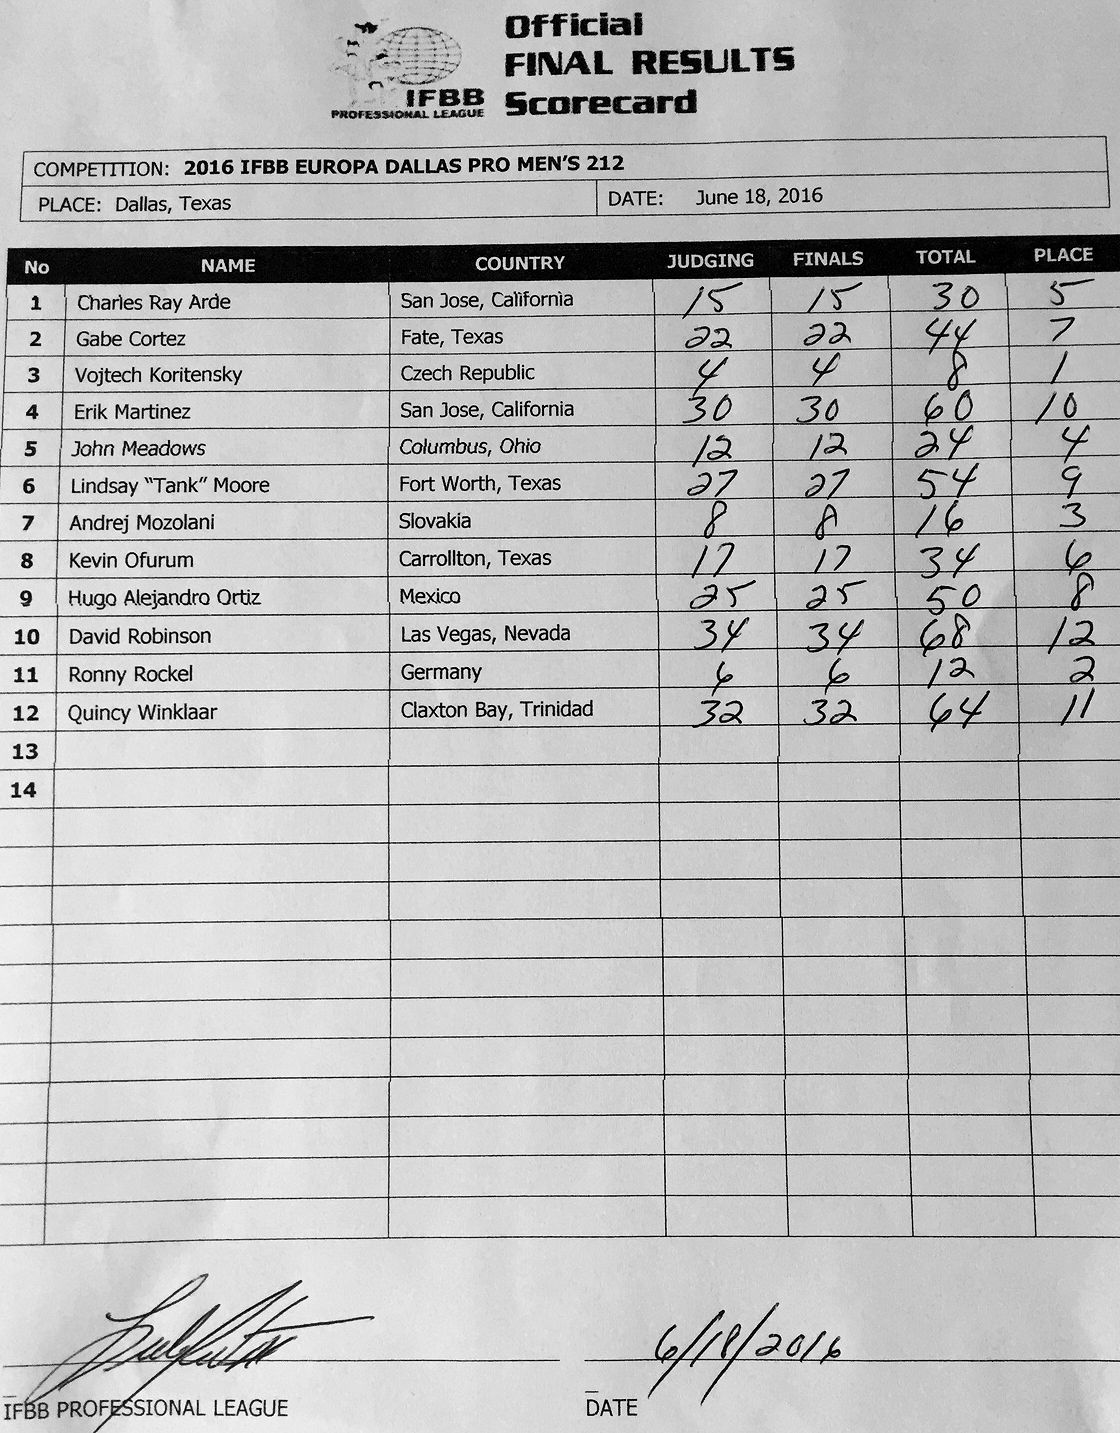 Official
FINAL RESULTS
Scorecard
IFBB
PROFESSIONAL LEAGUE
COMPETITION: 2016 IFBB EUROPA DALLAS PRO MEN'S 212
PLACE: Dallas, Texas DATE: June 18, 2016
No NAME COUNTRY JUDGING FINALS TOTAL PLACE
1 Charles Ray Arde San Jose, California 15 15 30 5
2 Gabe Cortez Fate, Texas 22 22 44 7
3 Vojtech Koritensky Czech Republic 4 4 8 1
4 Erik Martinez San Jose, California 30 30 60 10
5 John Meadows Columbus, Ohio 12 12 24 4
6 Lindsay "Tank" Moore Fort Worth, Texas 27 27 54 9
7 Andrej Mozolani Slovakia 8 8 16 3
8 Kevin Ofurum Carrollton, Texas 17 17 34 6
9 Hugo Alejandro Ortiz Mexico 25 25 50 8
10 David Robinson Las Vegas, Nevada 34 34 68 12
11 Ronny Rockel Germany 6 6 12 2
12 Quincy Winklaar Claxton Bay, Trinidad 32 32 64 11
13
14
6/18/2016
IFBB PROFESSIONAL LEAGUE DATE